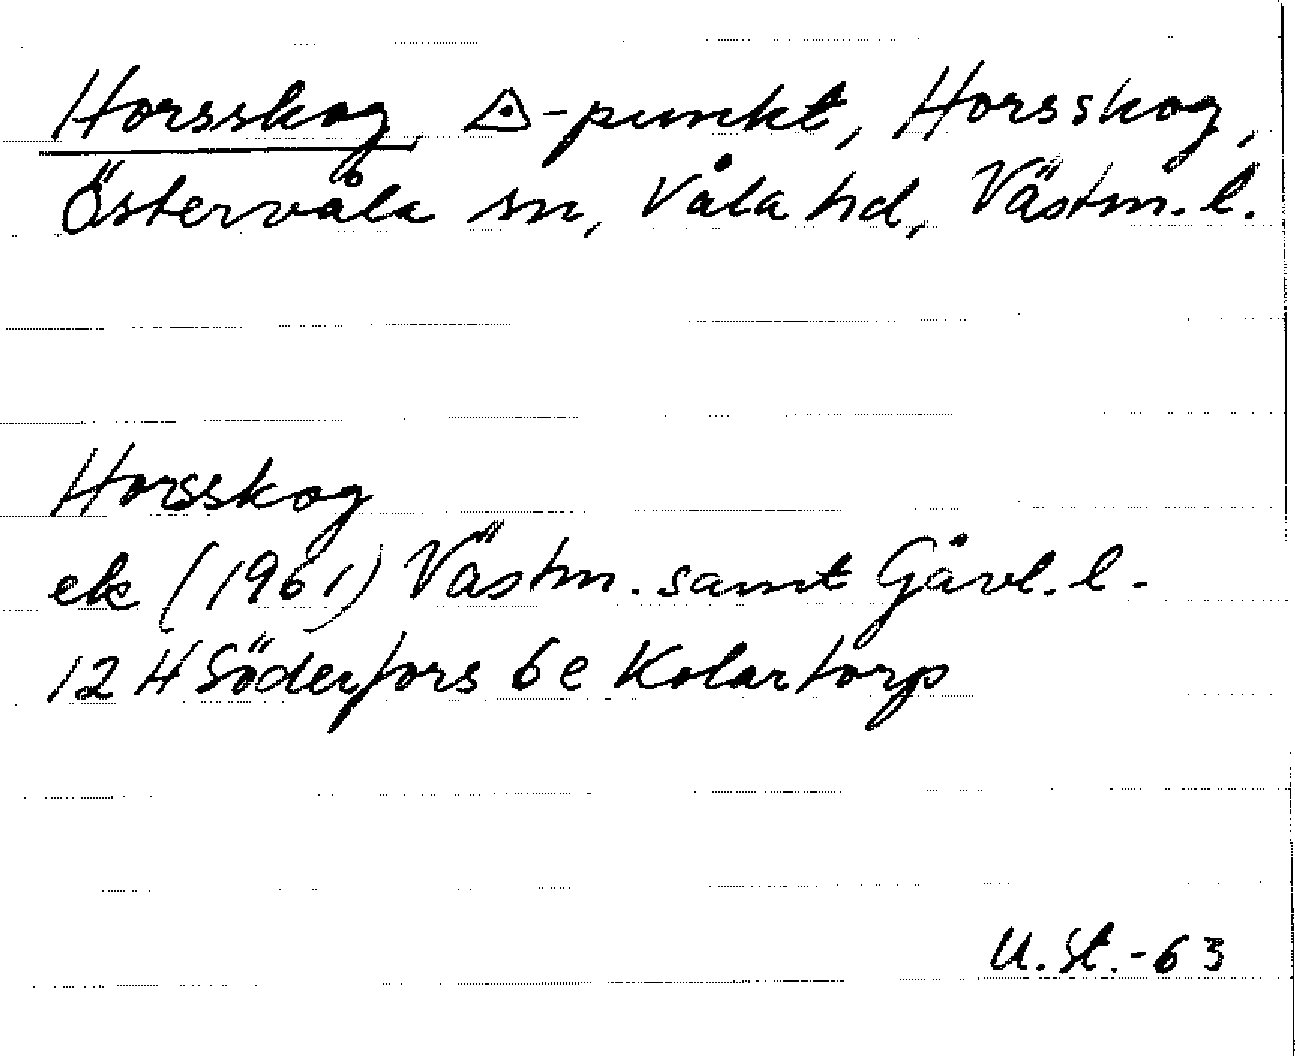 Horsskog, ◬-punkt, Horsskog,
Östervåla sn, Våla hd, Västm. l.
Horsskog
ek (1961) Västm. samt Gävl. l.
12 H Söderfors 6 e Kolartorp
U. St. -63